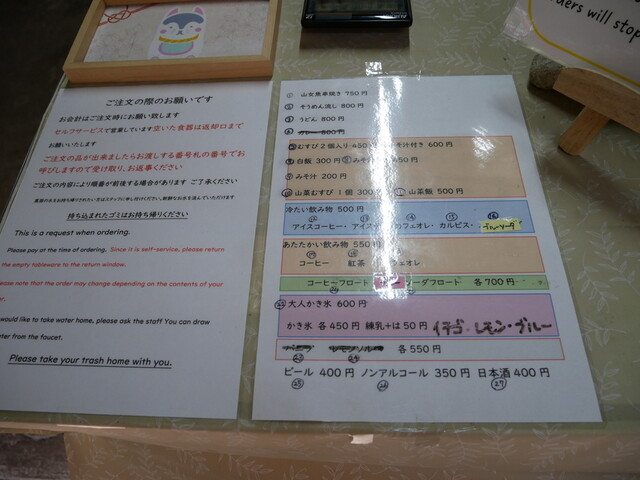 ders will stop
ご注文の際のお願いです
お会計はご注文時にお願い致します
セルフサービスで営業しています空いた食器は返却口まで
お願いいたします
ご注文の品が出来ましたらお渡しする番号札の番号でお
呼びしますので受け取り、お返事ください
ご注文の内容により順番が前後する場合があります ご了承ください
持ち込まれたゴミはお持ち帰りください
This is a request when ordering.
Please pay at the time of ordering. Since it is self-service, please return
the empty tableware to the return window.
ease note that the order may change depending on the contents of your
would like to take water home, please ask the staff You can draw
ter from the faucet.
Please take your trash home with you.
① 山女魚串焼き 750円
② そうめん流し 800円
③ うどん 800円
800円
むすび2個入り 450 そ汁付き 600円
白飯 300円 みそ 450円
みそ汁 200円
山菜むすび 1個 300 山菜飯 500円
冷たい飲み物 500円
アイスコーヒー・アイス カフェオレ・カルピス・
あたたかい飲み物 550
コーヒー 紅茶 フェオレ
コーヒーフロート ーダフロート 各700円
大人かき氷 600円
かき氷 各450円 練乳+は50円 イチゴ・レモン・ブルー
各550円
ビール 400円 ノンアルコール 350円 日本酒 400円
㉕ ㉖ ㉗